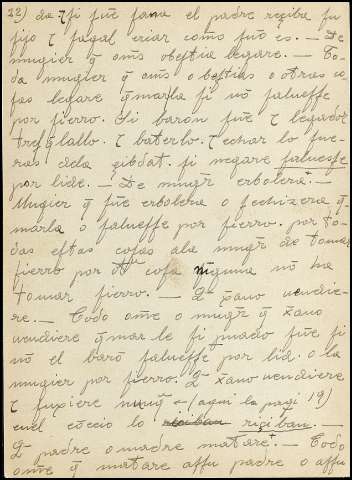 22) da ⁊ si fué sana el padre reciba su
fijo ⁊ fagal criar como fué es. — De
mugier q̄ om̄s obestia legare. — To-
da mugier q̄ om̄s o bestias o otras co-
sas legare q̄marla si nō salueffe
por fierro. Si baron fué ⁊ legador
tresq̄lallo. ⁊ baterlo. ⁊ echar lo fue-
ras dela çibdat. si negare saluesse
por lide. — De mugr̄ erbolera. —
Mugier q̄ fué erbolera o fechizera q̄-
marla o salueffe por fierro. por to-
das estas cosas ala mugr̄ de tomar
fierro por cosa ninguna nō ha
tomar fierro. — Q̄ xāno vendie-
re. — Todo om̄e o mugr̄ q̄ xāno
vendiere q̄mar le si fué si
nō el barō salueffe por lid. o la
mugier por fierro. Q̄ xāno vendiere
⁊ fuxiere nunq̄ (aqui la pagi 19)
enel cōcēio lo reciban riçiban. —
Q̄ padre o madre matare. — Todo
om̄e q̄ matare assu padre o assu